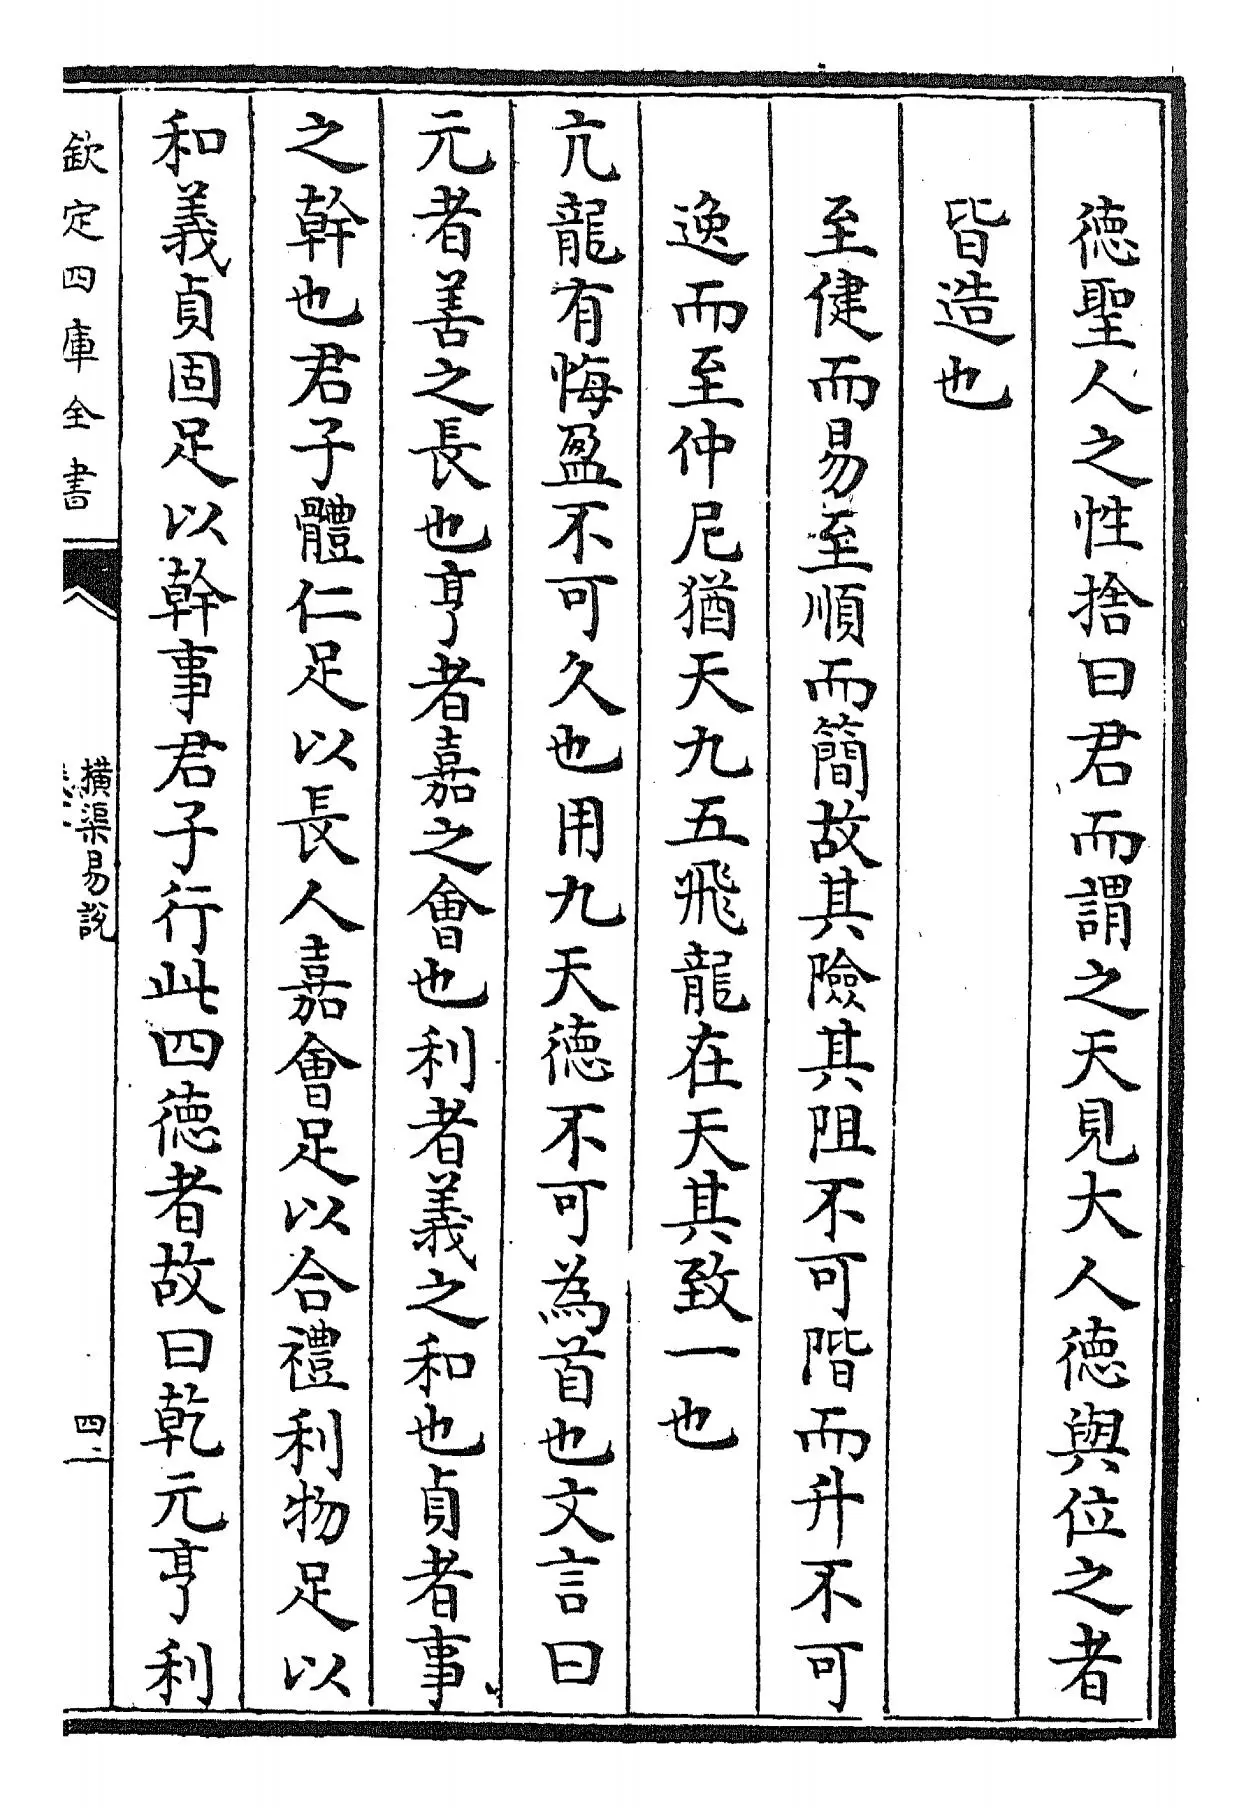 德聖人之性捨曰君而謂之天見大人德與位之者
皆造也
至健而易至順而簡故其險其阻不可階而升不可
逸而至仲尼猶天九五飛龍在天其致一也
亢龍有悔盈不可久也用九天德不可為首也文言曰
元者善之長也亨者嘉之會也利者義之和也貞者事
之幹也君子體仁足以長人嘉會足以合禮利物足以
和義貞固足以幹事君子行此四德者故曰乾元亨利
欽定四庫全書
橫渠易說
四二